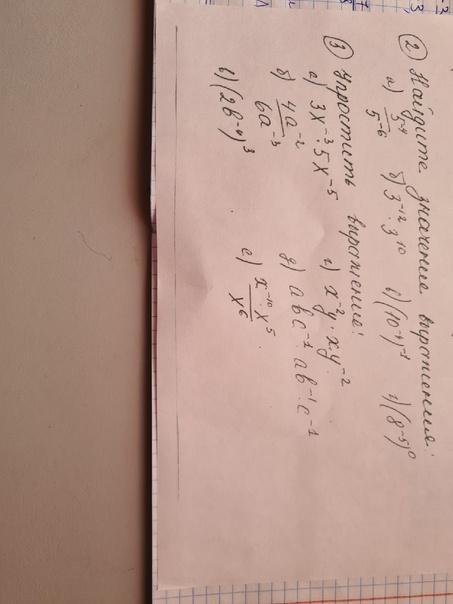 ② Найдите значение выражения:
а) 5⁻⁴/5⁻⁶ б) 3⁻¹²·3¹⁰ в) (10⁻⁴)⁻¹ г) (8⁻⁵)⁰
③ Упростить выражение:
а) 3x⁻³·5x⁻⁵ г) x⁻²y·xy⁻²
б) 4a⁻²/6a⁻³ д) abc⁻¹·ab⁻¹·c⁻¹
в) (2b⁻⁴)³ е) x⁻¹⁰·x⁵/x⁶